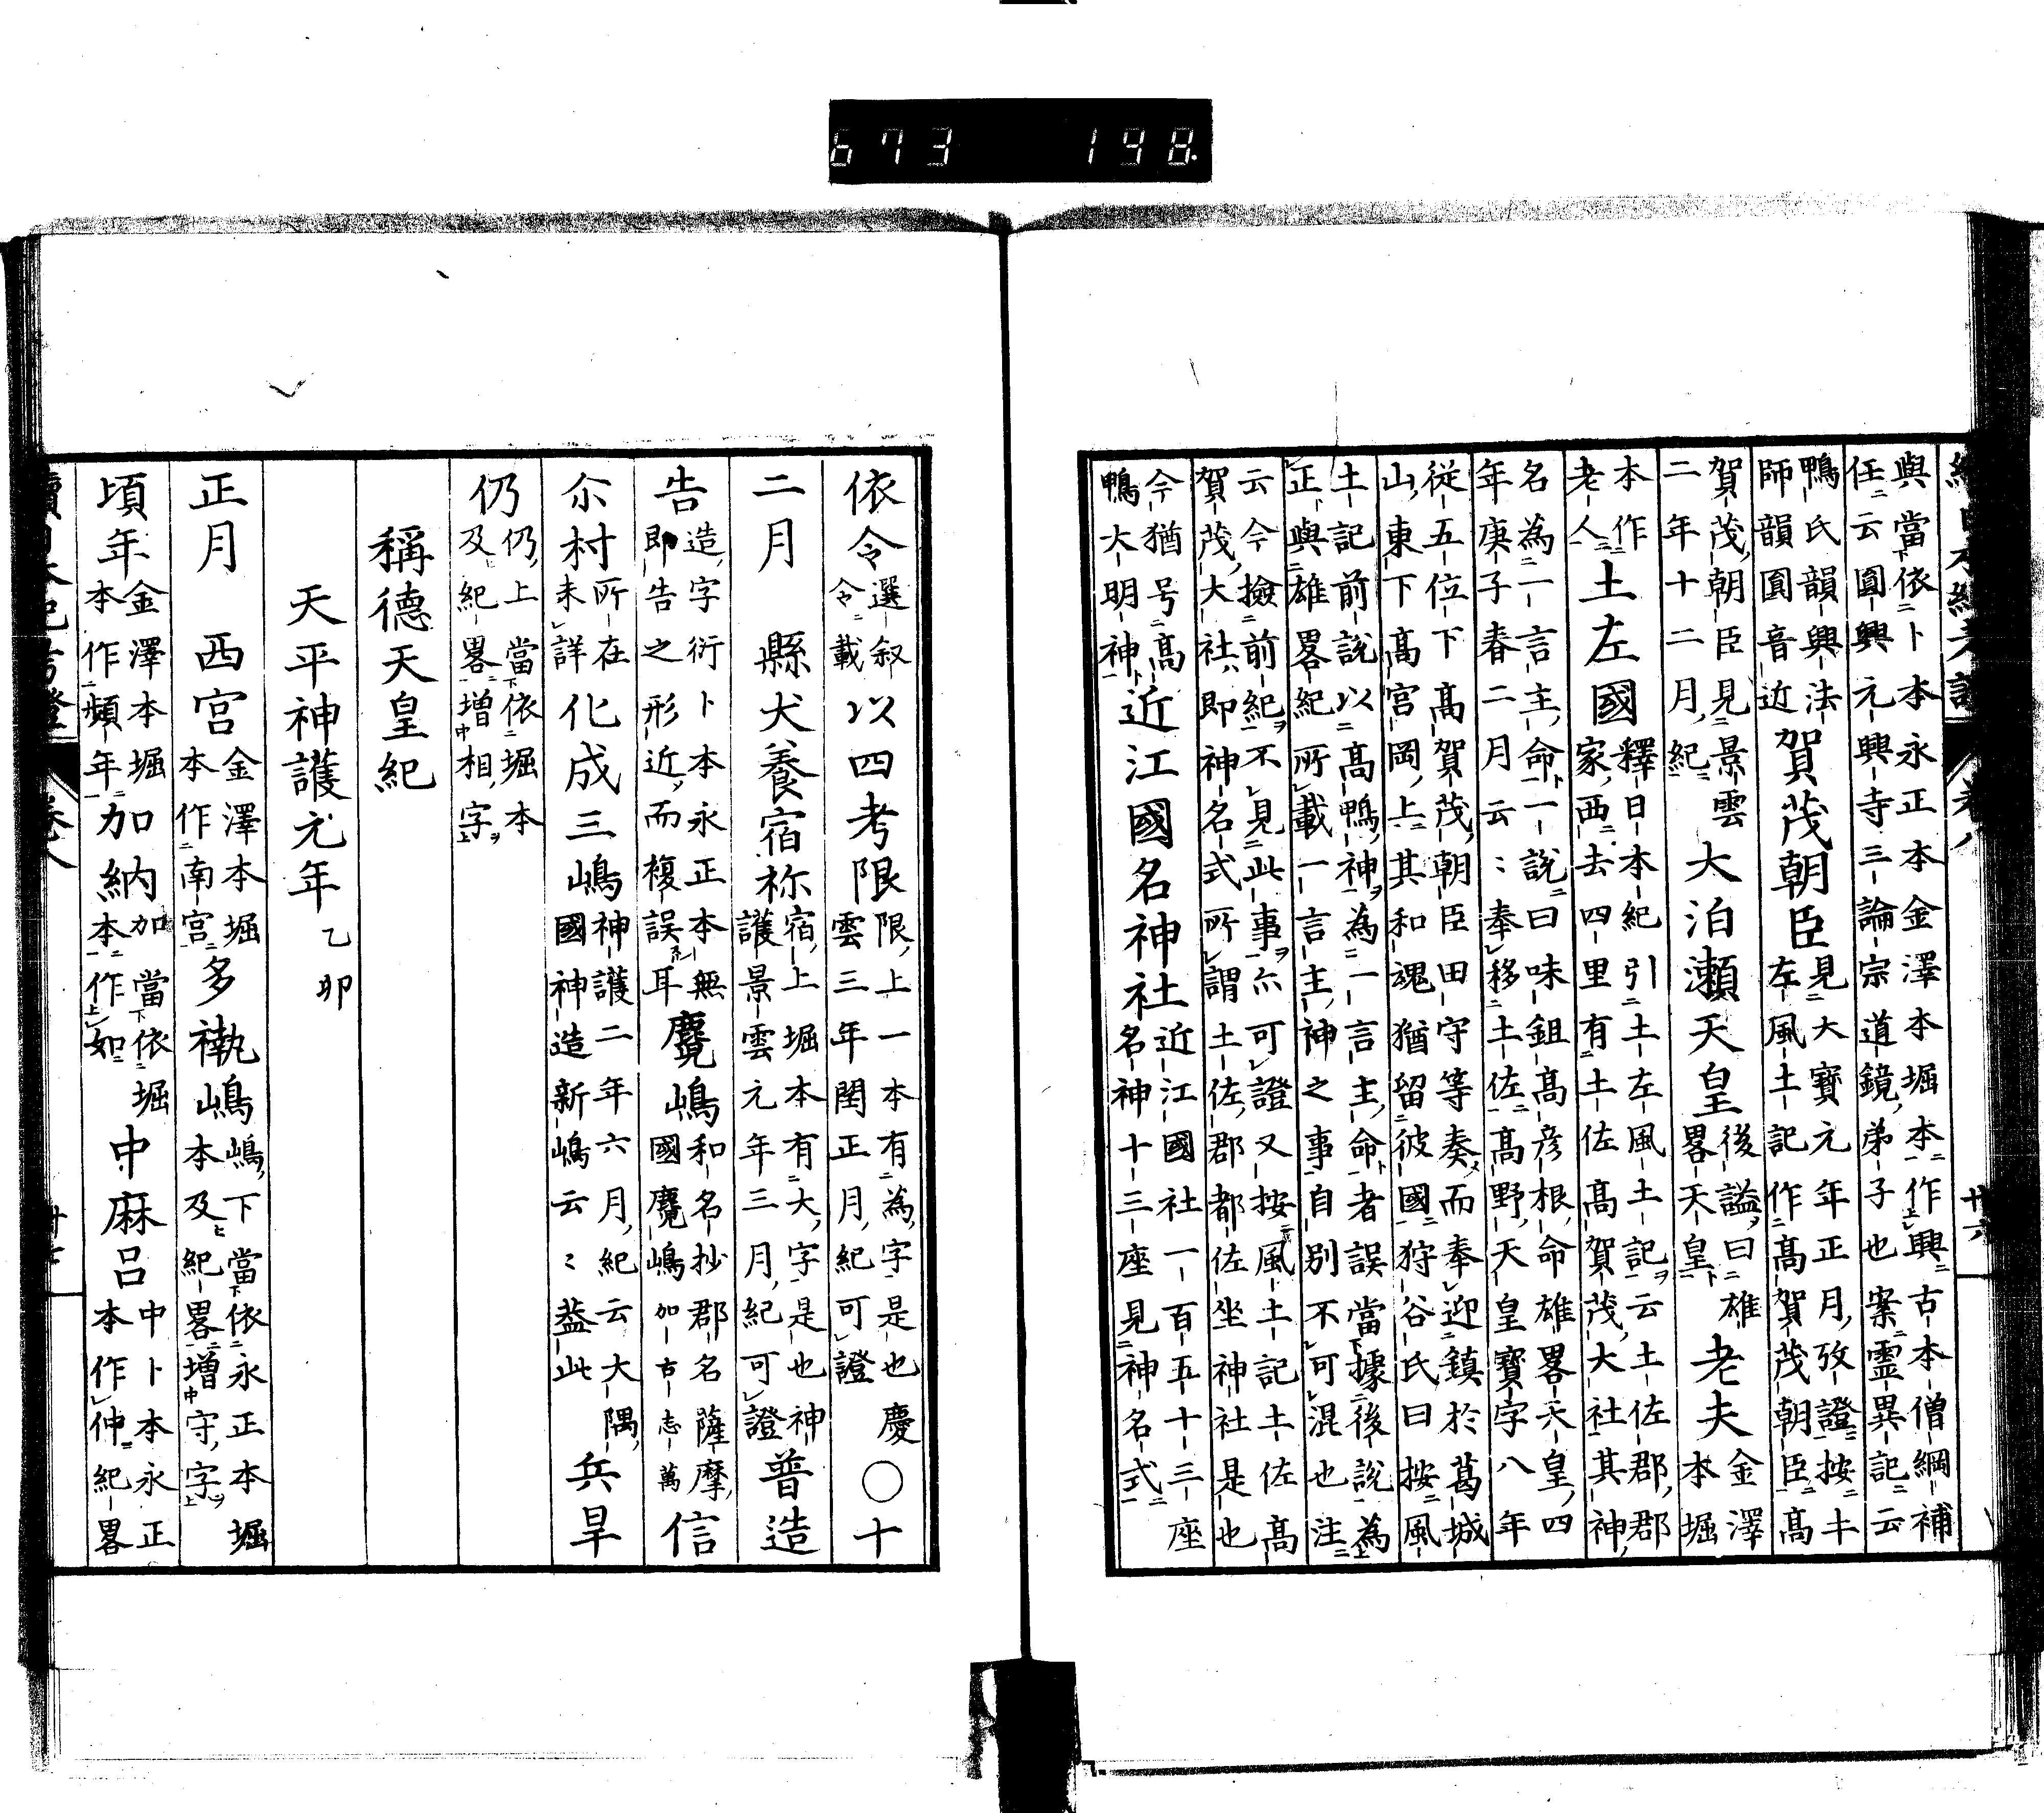 673 198.
與當依卜本永正本金澤本堀本作興古本僧綱補
任云圓興元興寺三論宗道鏡弟子也案霊異記云
鴨氏韻興法
師韻圓音近賀茂朝臣見大寶元年正月攷證按土
左風土記作高賀茂朝臣高
賀茂朝臣見景雲
二年十二月紀大泊瀬天皇後謚曰雄
畧天皇老夫金澤
本堀
本作
老人土左國釋日本紀引土左風土記云土佐郡郡
家西去四里有土佐高賀茂大社其神
名為一言主命一説曰味鉏高彦根命雄畧天皇四
年庚子春二月云〻奉移土佐高野天皇寶字八年
從五位下高賀茂朝臣田守等奏而奉迎鎮於葛城
山東下高宮岡上其和魂猶留彼國狩谷氏曰按風
土記前説以高鴨神為一言主命者誤當據後説為
正與雄畧紀所載一言主神之事自別不可混也注
云今撿前紀不見此事尒可證又按風土記土佐高
賀茂大社即神名式所謂土佐郡都佐坐神社是也
今猶号高
鴨大明神近江國名神社近江國社一百五十三座
名神十三座見神名式
依令選叙
令載以四考限限上一本有為字是也慶
雲三年閏正月紀可證〇十
二月 縣犬養宿祢宿上堀本有大字是也神
護景雲元年三月紀可證普造
告造字衍卜本永正本無
即告之形近而複誤耳麑嶋和名抄郡名薩摩
國麑嶋加古志萬信
尒村所在
未詳化成三嶋神護二年六月紀云大隅
國神造新嶋云〻葢此兵旱
仍仍上當依堀本
及紀畧増相字
稱德天皇紀
天平神護元年乙卯
正月 西宮金澤本堀
本作南宮多褹嶋嶋下當依永正本堀
本及紀畧増守字
頃年金澤本堀
本作頻年加納加當依堀
本作如中麻呂中卜本永正
本作仲紀畧